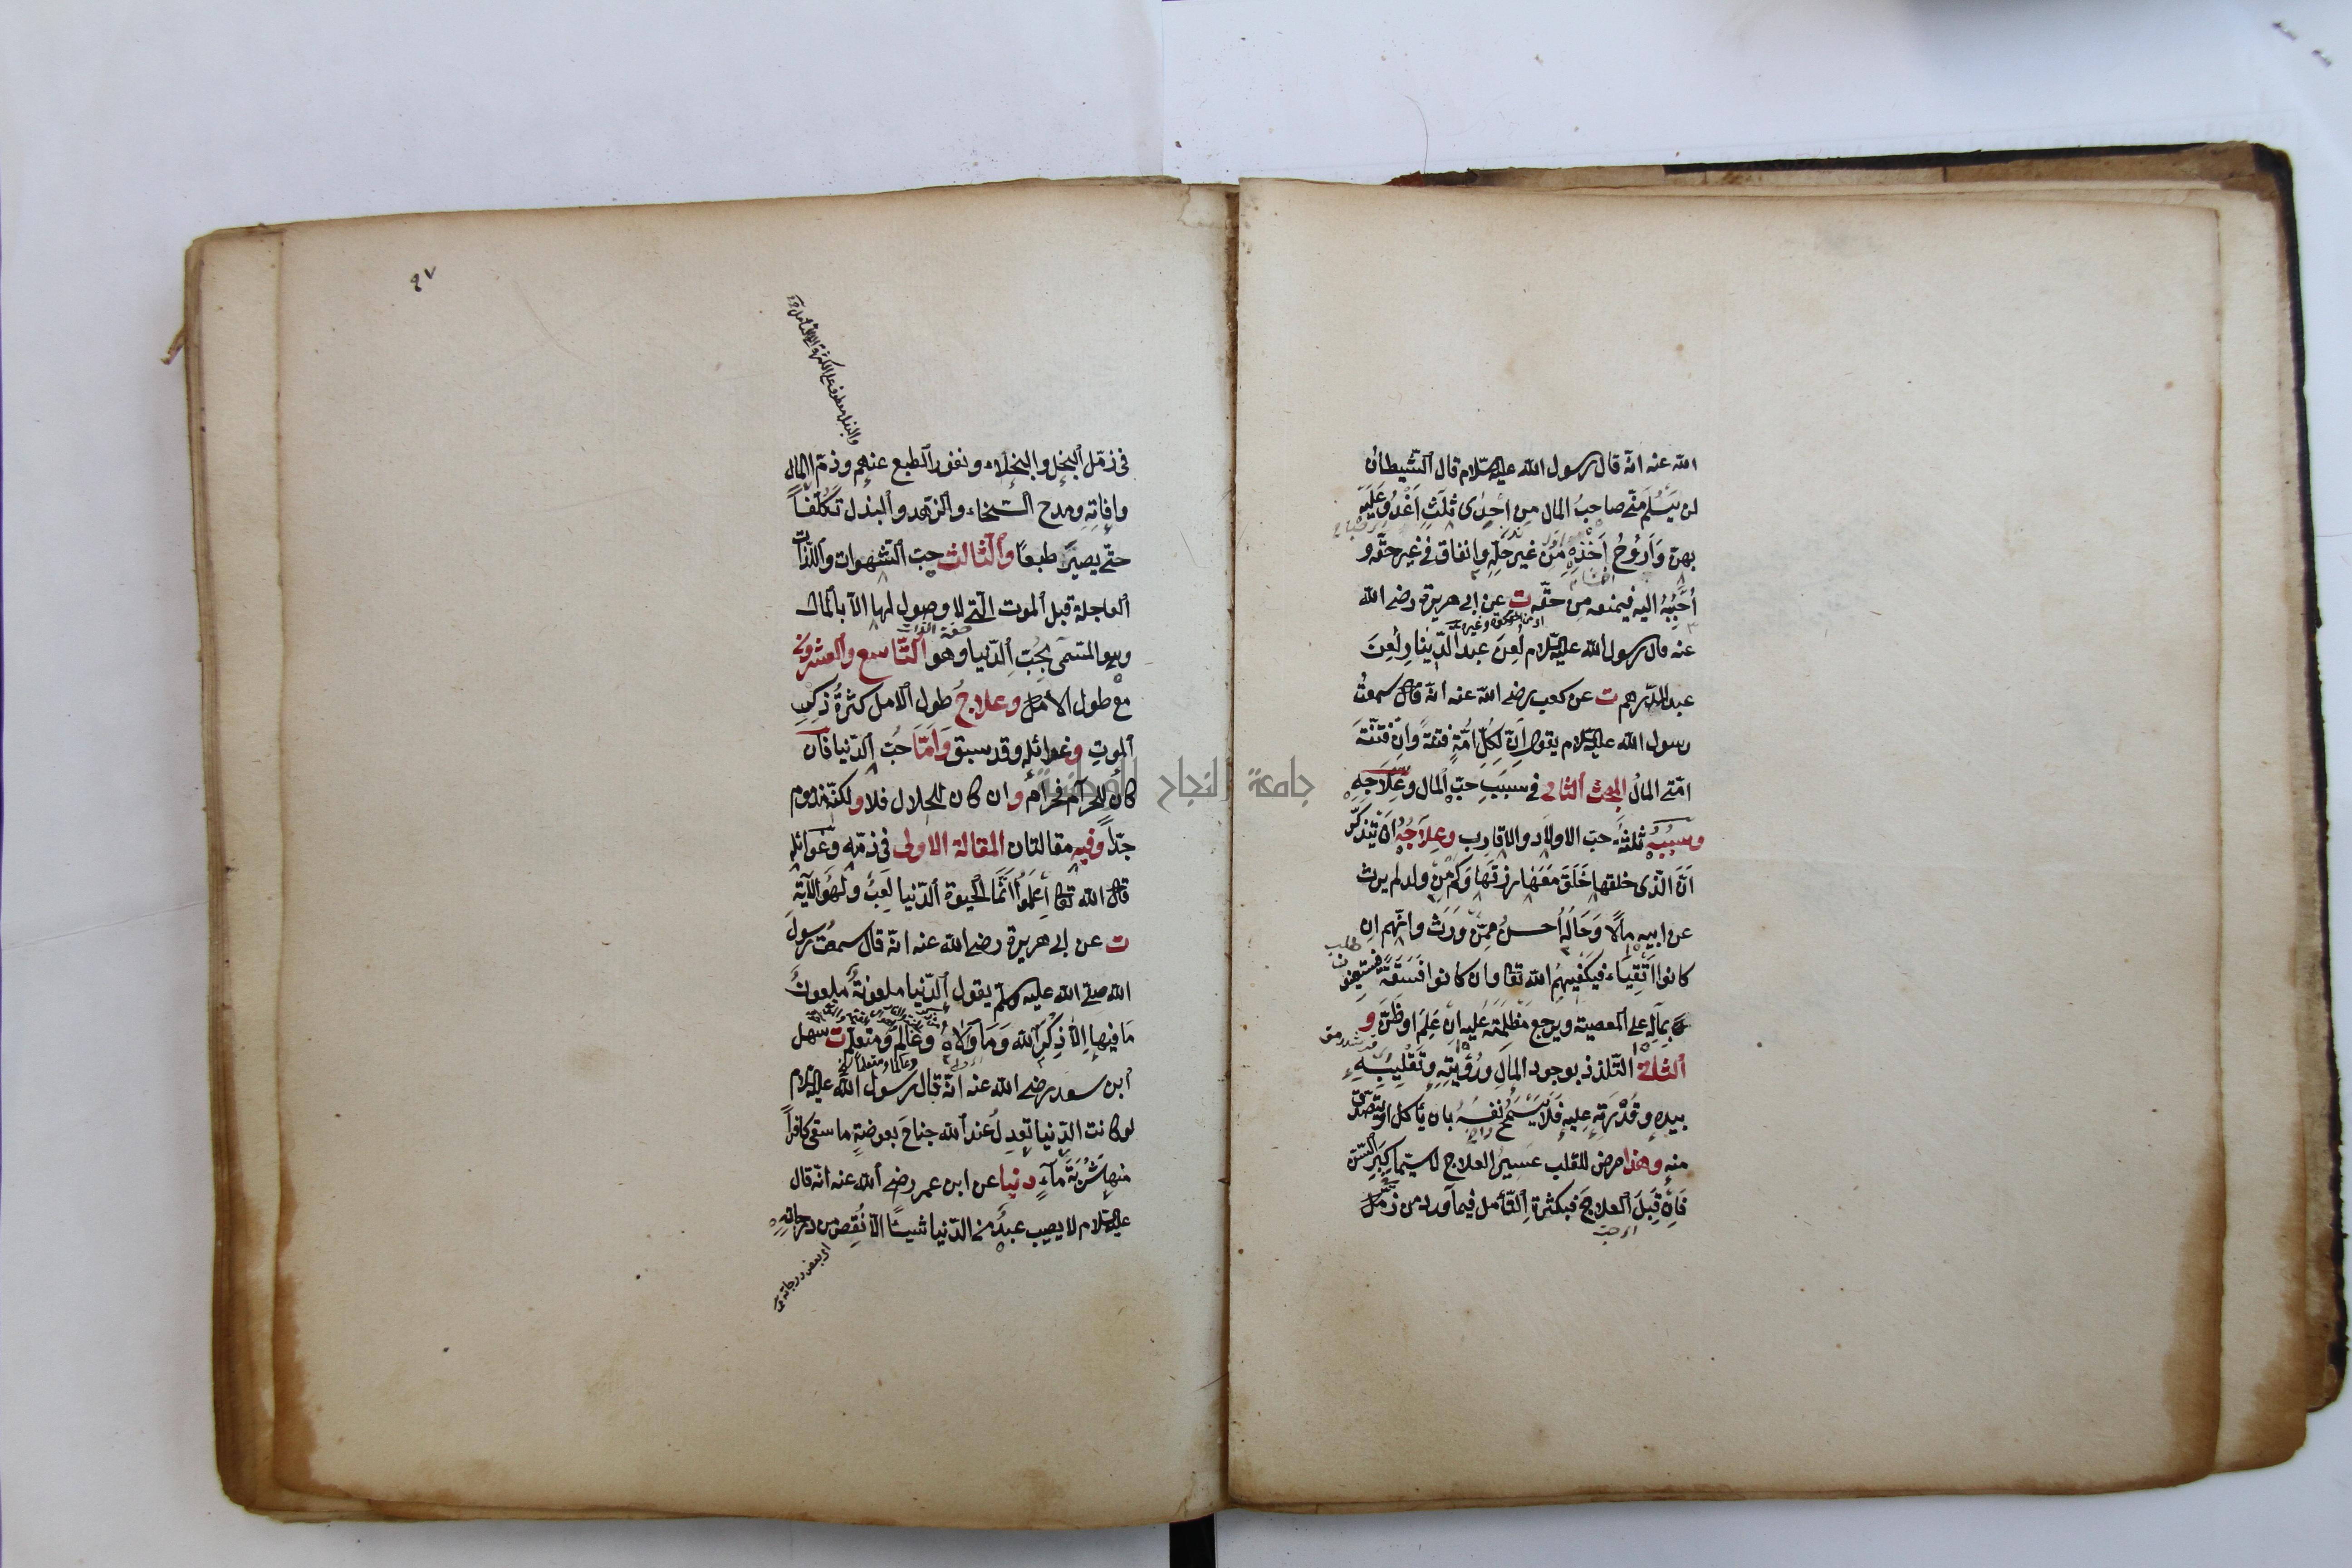 الله عنه انه قال رسول الله عليه السلام قال الشيطان
لن يَسْلَم منّى صاحبُ المال من اِحدٰى ثلثٍ اَغْدُو عليه
بهن وَاَرُوحُ اَخْذِهِ مِن غيرحِلِّهِ وانفاق في غيرحقّه و
اُحَبِّبُهُ اليه فيمنعه من حقّه ت عن ابى هريرة رضى الله
عنه قال رسول الله عليه السلام لُعِنَ عبد الدّينار لُعِنَ
عبد الدّرهم ت عن كعب رضى الله عنه انّه قال سمعتُ
رسول الله عليه السلام يقول اِنّ لِكلّ اُمّةٍ فتنةً وَاِنّ فتنةَ
امّتى المالُ المبحث الثانى فى سببِ حبّ المال وعِلاجِهِ
وسببُه ثلثةٌ حبّ الاولاد والاقارب وعِلاجُهُ ان يتذكّر
انّ الّذى خلقها خَلَقَ مَعَهٰا رزقَها وَكَم مِن ولد لم يرث
عن ابيه مالاً وحَالُهُ احسنُ مِمّن وَرَثَ وانّهم ان
كانوا اتقِيَاء فيكفيهِم الله تعا وان كانوا فَسَقَةً فيستعينوا
بماله على المعصية ويرجع مَظلِمَتُه عليه ان عَلِمَ اوظنّ و
الثانى التّلذذ بوجود المالِ ورُؤيَتِهِ وتقليبِهِ
بيده وقُدْرَتِهِ عليه فلا يَسْمَحُ نفسُهُ بان يأكل اويتصدّق
منه وهٰذا مرض للقلب عسيرُ العلاج لا سيّما كِبَرَ السّنّ
فَاِن قَبِلَ العلاجَ فبكثرة التّأمل فيما ورد من ذمّ
٩٧
فى ذمّ البخل والبخلاء ونفور الطبع عنهم وذمّ المال
وافاتِهِ ومدح السّخاء والزّهد والبذل تَكَلّفاً
حتّى يصير طبعًا والثالث حبّ الشهوات واللّذات
العاجلة قبل الموت الّتى لا وصول لها الاّ بالمال
وهو المسمّى بحُبّ الدّنيا وهو التّاسع والعشرون
مع طول الامل وعلاجُ طول الامل كثرةُ ذكرِ
الموتِ وغوائلِه وقد سبق وَامّا حُبّ الدّنيا فان
كان للحرام فحرامٌ وان كان للحلال فلا ولكنّه مذموم
جدّاً وفيه مقالتان المقالة الاولى فى ذمّه وغوائله
قال الله تعا اِعْلَمُوا اَنَّما الحيوة الدّنيا لَعِبٌ ولَهْوٌ الآية
ت عن ابى هريرة رضى الله عنه انّه قال سمعت رسولَ
الله صلّى الله عليه وسلّم يقول الدّنيا ملعونةٌ ملعونٌ
مَا فيها اِلاّ ذِكْرَ الله وَمَا وَالاهُ وعالِمٌ ومتعلّم ت سهل
ابن سعد رضى الله عنه انّه قال رسول الله عليه السلام
لوكانت الدّنيا تعدِلُ عند الله جناحَ بعوضةٍ ما سقى كافراً
منها شَرْبَةَ ماءٍ دنيا عن ابن عمر رضى الله عنه انّه قال
عليه السلام لا يصيب عبدٌ من الدّنيا شيئًا الاّ نُقِصَ من درجاتِهِ
جامعة النجاح الوطنية